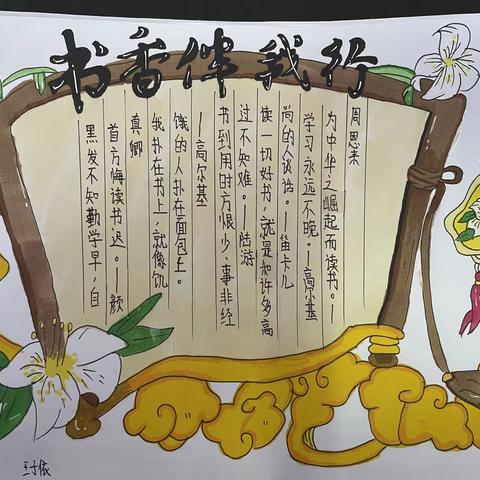 书香伴我行
黑发不知勤学早，自
首方悔读书迟。—颜
真卿
我扑在书上，就像饥
饿的人扑在面包上。
—高尔基
书到用时方恨少，事非经
过不知难。—陆游
读一切好书，就是和许多高
尚的人谈话。—笛卡儿
学习永远不晚。—高尔基
为中华之崛起而读书。—
周恩来